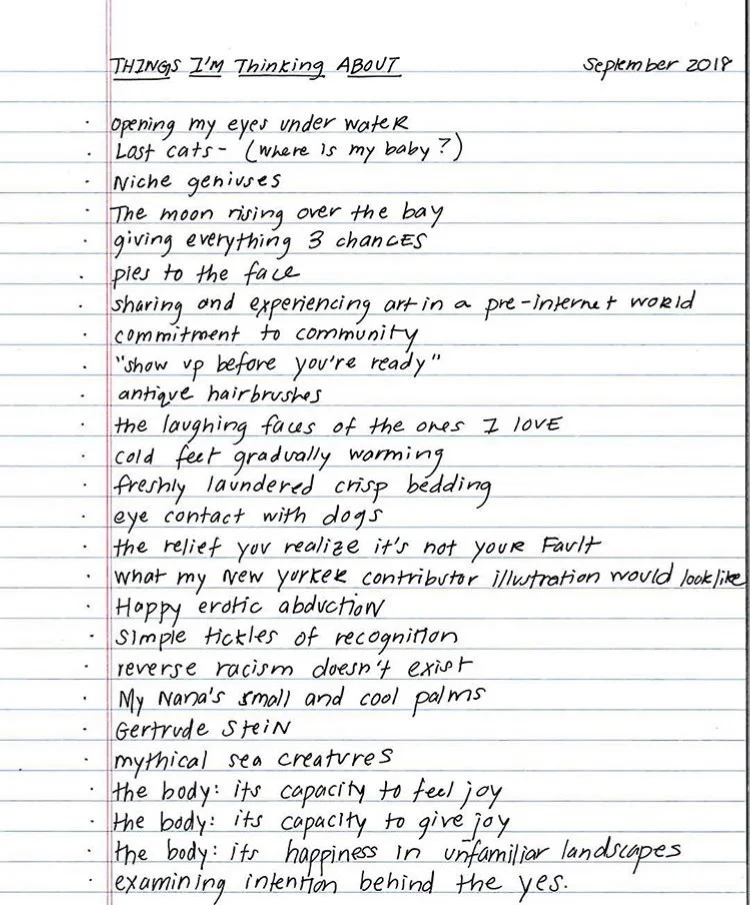 THINGS I'M Thinking ABOUT September 2018
· opening my eyes under wateR
· Lost cats - (where is my baby?)
· Niche geniuses
· The moon rising over the bay
· giving everything 3 chancES
· pies to the face
· sharing and experiencing art in a pre-internet woRld
· commitment to community
· "show up before you're ready"
· antique hairbrushes
· the laughing faces of the ones I lOVE
· cold feet gradually warming
· freshly laundered crisp bedding
· eye contact with dogs
· the relief you realize it's not youR Fault
· what my New yorkeR contributor illustration would look like
· Happy erotic abduction
· Simple tickles of recognition
· reverse racism doesn't exist
· My Nana's small and cool palms
· Gertrude SteiN
· mythical sea creatures
· the body: its capacity to feel joy
· the body: its capacity to give joy
· the body: its happiness in unfamiliar landscapes
· examining intention behind the yes.